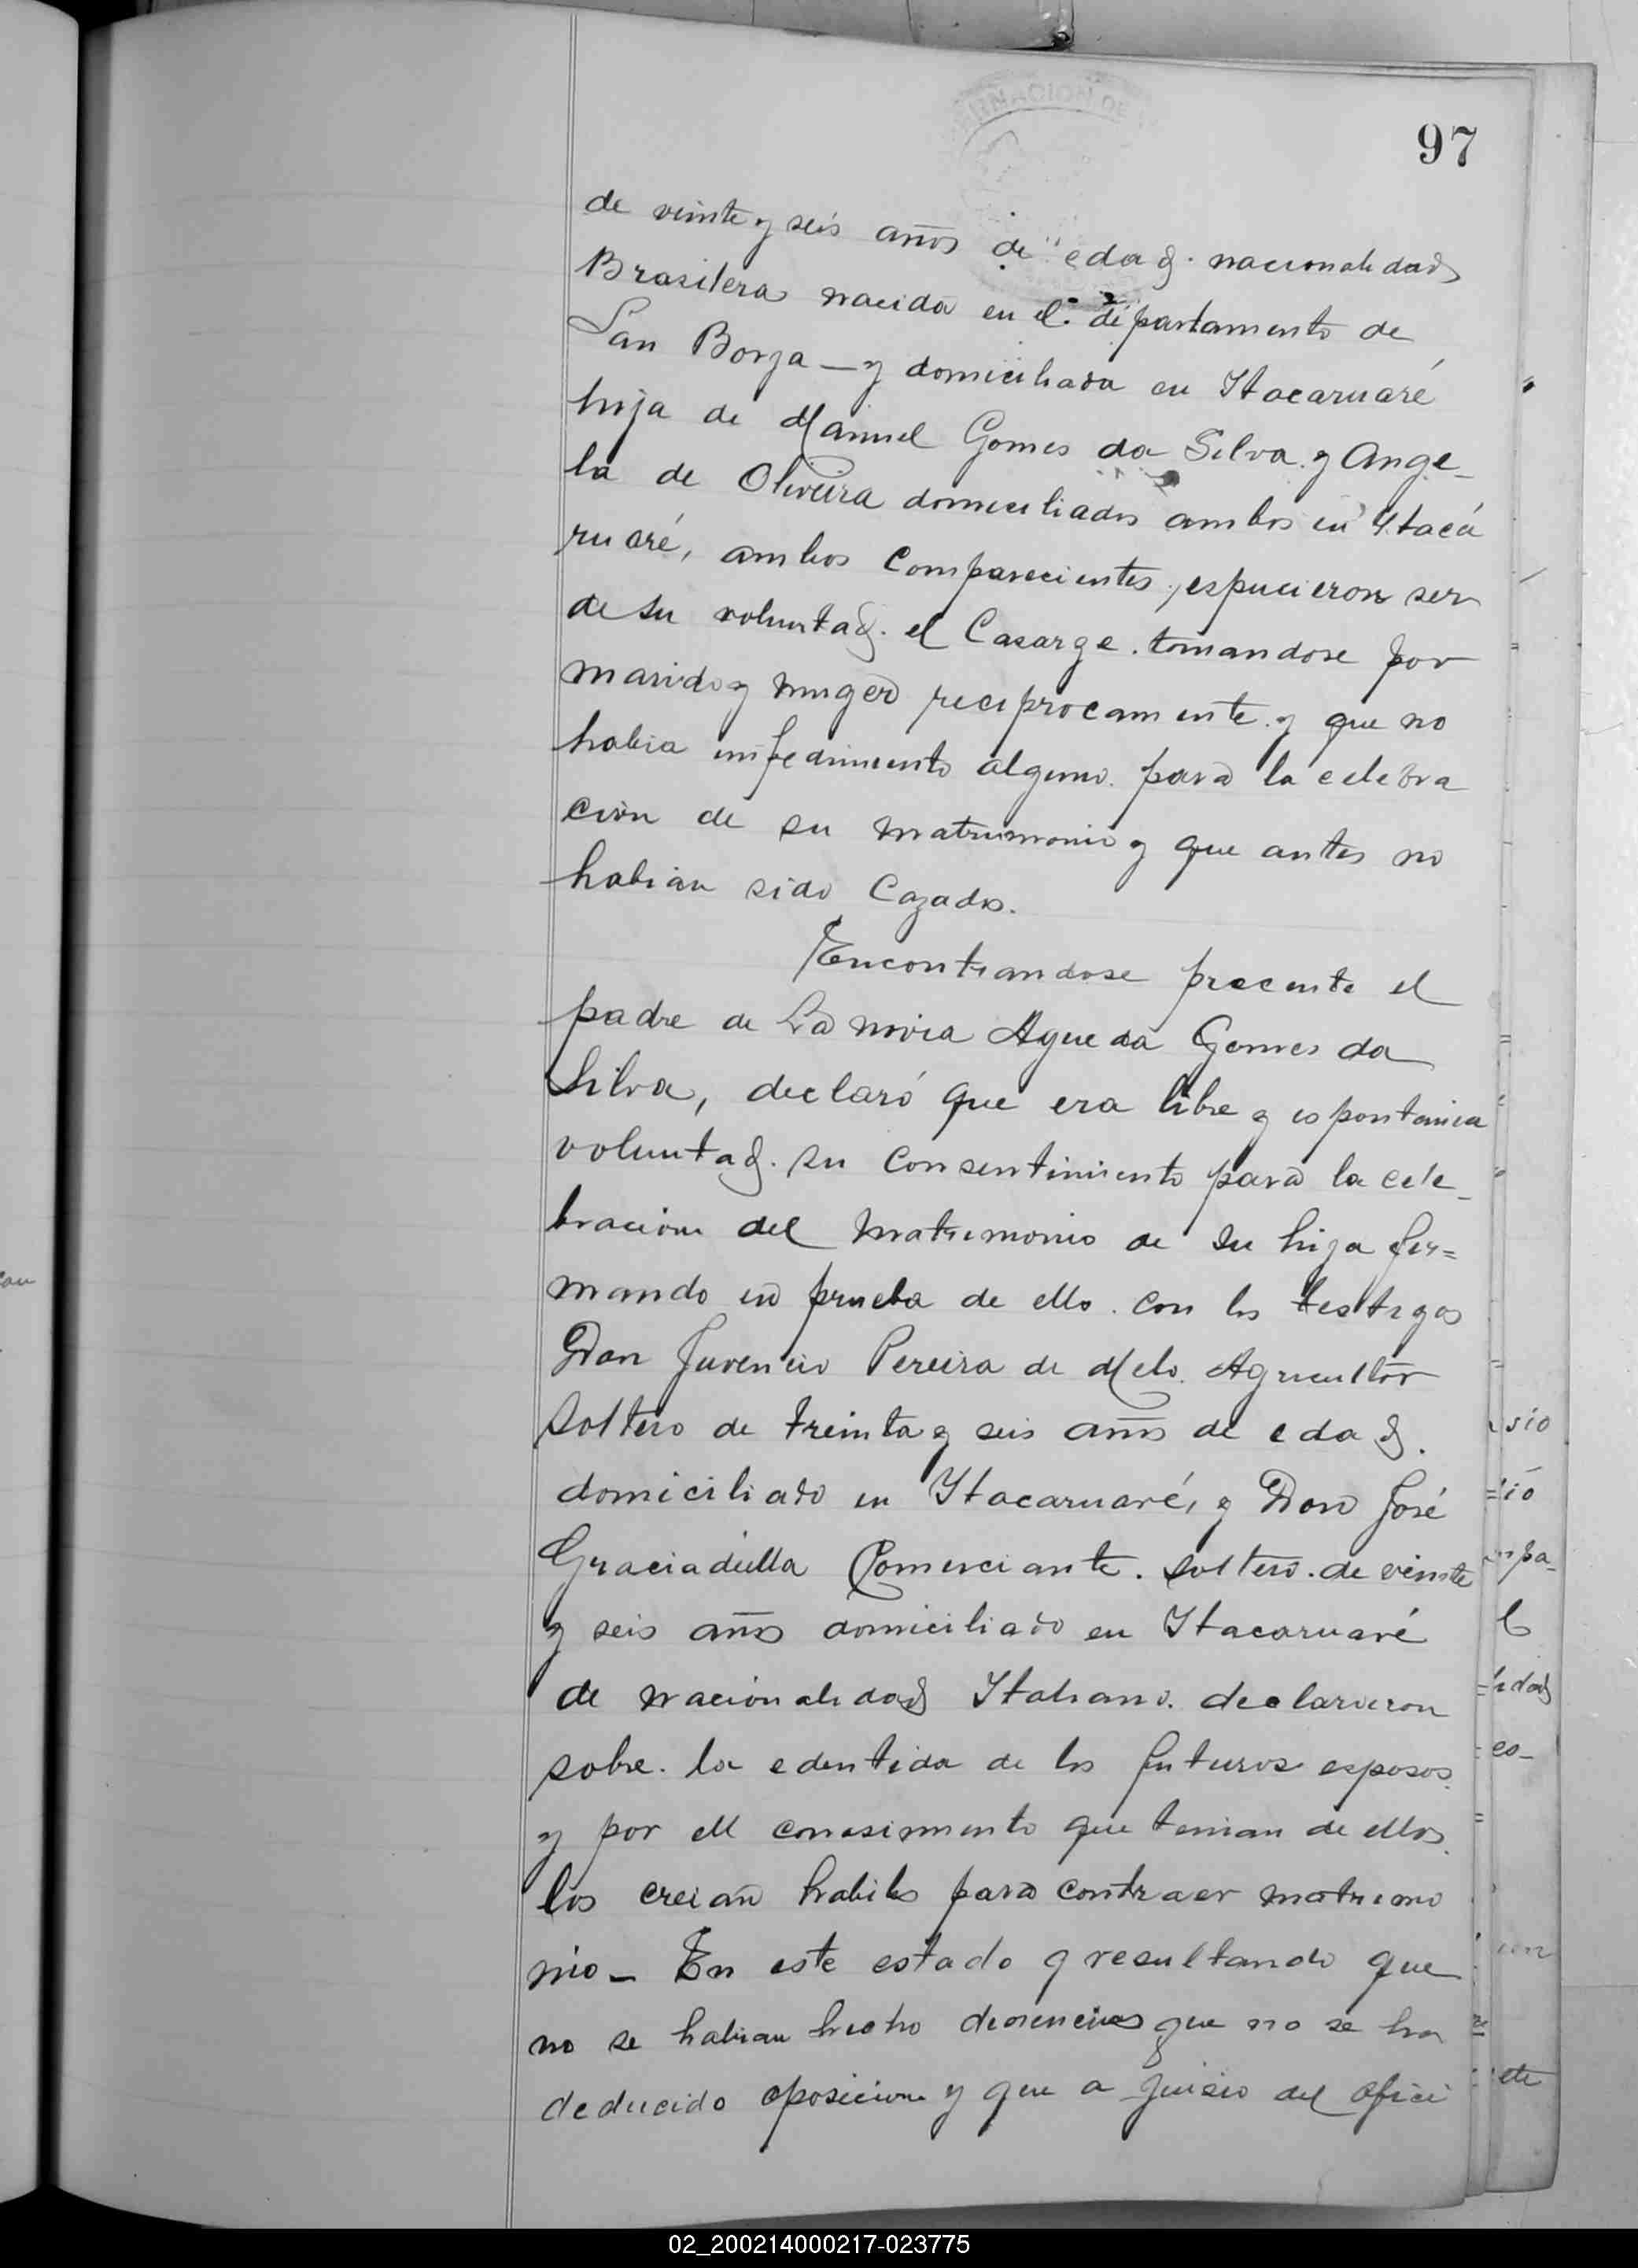 RNACION DE
97
de veinte y seis años de edad. nacionalidad
Brasilera nacida en el departamento de
San Borja — y domiciliada en Itacaruaré
hija de Manuel Gomes da Silva. y Ange_
la de Oliveira domiciliados ambos en Itacá
ruaré, ambos Comparecientes, espucieron ser
de su voluntad. el Casarge. tomandose por
marido y muger reciprocamente. y que no
habia impedimento alguno. para la celebra
cion de su matrimonio y que antes no
habian sido Cazados.
Encontrandose precente el
padre de La novia Agueda Gomes da
Silva, declaró que era libre y espontanea
voluntad. su Consentimiento para la cele_
bracion del matrimonio de su hija fir=
mando en prueba de ello. con los testigos
Don Juvencio Pereira de Melo. Agricultor
Soltero de treinta y seis años de edad.
domiciliado en Itacaruaré, y Don José
Graciadella Comerciante. soltero. de veinte
y seis años domiciliado en Itacaruaré
de nacionalidad Italiano. declararon
sobre. la edentida de los futuros esposos.
y por ell conosimiento que tenian de ellos.
los creian habiles para contraer matrimo
nio_ En este estado y resultando que
no se habian hecho denencias que no se ha
deducido oposicion y que a juisio del ofici
sio
=ió
mpa_
l
=lidad
es_
ion
de
cau
02_200214000217-023775